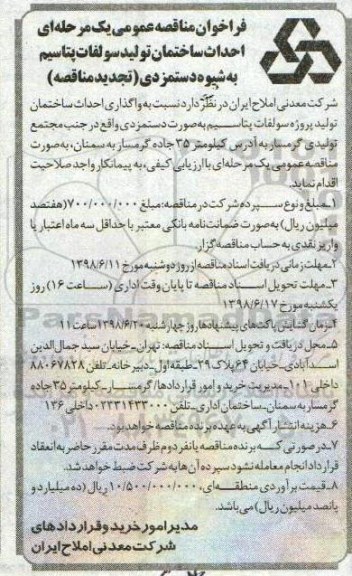 فراخوان مناقصه عمومی یک مرحله‌ای
احداث ساختمان تولید سولفات پتاسیم
به شیوه دستمزدی (تجدید مناقصه)
شرکت معدنی املاح ایران در نظر دارد نسبت به واگذاری احداث ساختمان
تولید پروژه سولفات پتاسیم به صورت دستمزدی واقع در جنب مجتمع
تولیدی گرمسار به آدرس کیلومتر ۳۵ جاده گرمسار به سمنان، به صورت
مناقصه عمومی یک مرحله‌ای با ارزیابی کیفی، به پیمانکار واجد صلاحیت
اقدام نماید.
۱-مبلغ و نوع سپرده شرکت در مناقصه: مبلغ ۷۰۰/۰۰۰/۰۰۰ (هفتصد
میلیون ریال) به صورت ضمانت‌نامه بانکی معتبر با حداقل سه ماه اعتبار یا
واریز نقدی به حساب مناقصه گزار.
۲-مهلت زمانی دریافت اسناد مناقصه از روز دوشنبه مورخ ۱۳۹۸/۶/۱۱
۳-مهلت تحویل اسناد مناقصه تا پایان وقت اداری (ساعت ۱۶) روز
یکشنبه مورخ ۱۳۹۸/۶/۱۷
۴-زمان گشایش پاکت‌های پیشنهادها روز چهارشنبه ۱۳۹۸/۶/۲۰ ساعت ۱۱
۵-محل دریافت و تحویل اسناد مناقصه: تهران-خیابان سید جمال‌الدین
اسدآبادی-خیابان ۶۴ پلاک ۲۹-طبقه اول-دبیرخانه-تلفن ۸۸۰۶۷۸۲۸
داخلی ۱۰۱-مدیریت خرید و امور قراردادها/گرمسار-کیلومتر ۳۵ جاده
گرمسار به سمنان-ساختمان اداری-تلفن ۰۲۳۳۱۴۳۳۰۰۰ داخلی ۱۳۶
۶-هزینه انتشار آگهی به عهده برنده مناقصه خواهد بود.
۷-در صورتی که برنده مناقصه یا نفر دوم ظرف مدت مقرر حاضر به انعقاد
قرارداد انجام معامله نشود سپرده آن‌ها به شرکت ضبط خواهد شد.
۸-قیمت برآوردی منطقه‌ای، ۱۰/۵۰۰/۰۰۰/۰۰۰ ریال (ده میلیارد و
پانصد میلیون ریال) می‌باشد.
مدیر امور خرید و قراردادهای
شرکت معدنی املاح ایران